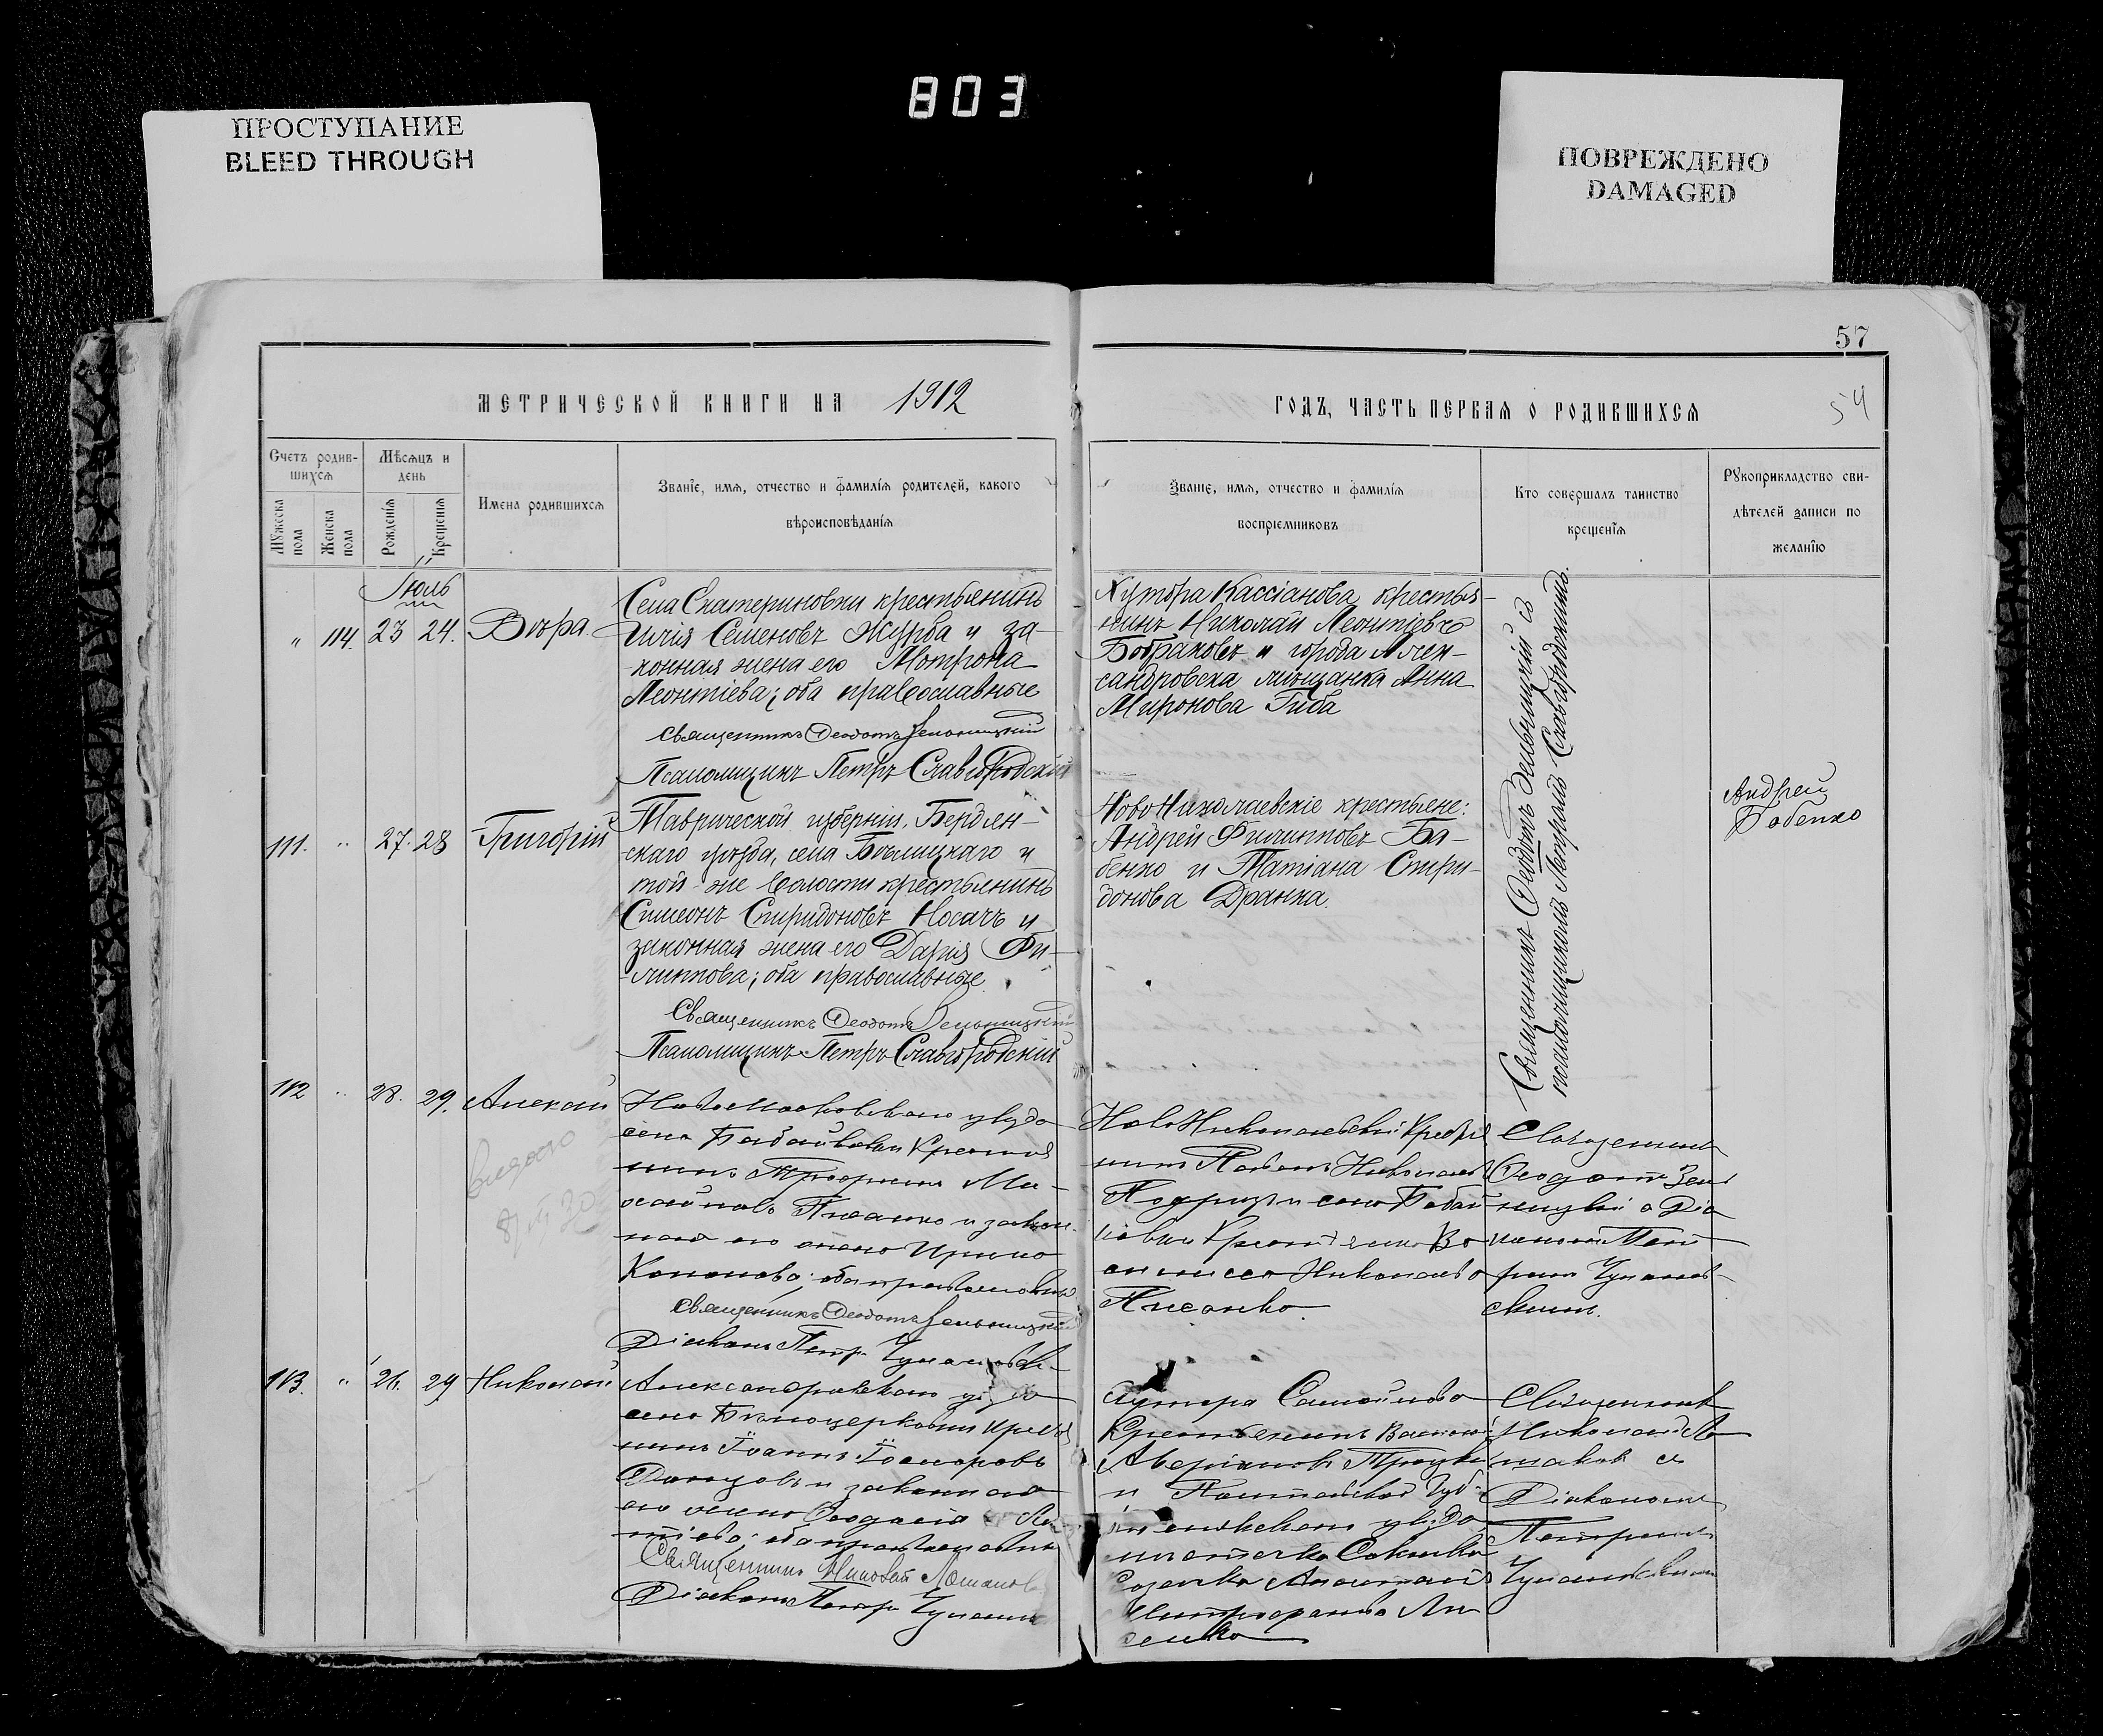 803
ПРОСТУПАНИЕ
BLEED THROUGH
ПОВРЕЖДЕНО
DAMAGED
57
54
МЕТРИЧЕСКОЙ КНИГИ НА 1912
ГОДЪ, ЧАСТЬ ПЕРВАЯ О РОДИВШИХСЯ
Счетъ родив-
шихся
Мѣсяцъ и
день
Мужеска
пола
Женска
пола
Рожденія
Крещенія
Имена родившихся
Званіе, имя, отчество и фамилія родителей, какого
вѣроисповѣданія
Званіе, имя, отчество и фамилія
воспріемниковъ
Кто совершалъ таинство
крещенія
Рукоприкладство сви-
дѣтелей записи по
желанію
Іюль
" 114. 23 24. Вѣра
Села Екатериновки крестьянинъ
Илія Семеновъ Журба и за-
конная жена его Мотрона
Леонтіева; оба православные
Священникъ Ѳеодотъ Зельницкій
Псаломщикъ Петръ Славгородскій
Хутора Кассіанова крестья-
нинъ Николай Леонтіевъ
Бобраковъ и города Алек-
сандровска мѣщанка Анна
Миронова Гиба
Священникъ Ѳеодотъ Зельницкій съ
псаломщикомъ Петромъ Славгородскимъ.
111. " 27. 28 Григорій
Таврической губерніи, Бердян-
скаго уѣзда, села Бѣлицкаго и
той-же волости крестьянинъ
Симеонъ Спиридоновъ Носачъ и
законная жена его Дарія Фи-
липпова; оба православные.
Священникъ Ѳеодотъ Зельницкій
Псаломщикъ Петръ Славгородскій
НовоНиколаевскіе крестьяне:
Андрей Филипповъ Ба-
бенко и Татіана Спири-
донова Дранка.
Андрей
Бабенко
112 " 28. 29. Алексѣй
Новомосковскаго уѣзда
села Бабайковки Крестья
нинъ Трофимъ Ми-
хайловъ Писанко и закон-
ная его жена Ирина
Кононова; оба православные
Священникъ Ѳеодотъ Зельницкій
Діаконъ Петръ
НовоНиколаевскій Крестья
нинъ Павелъ Николаевъ
и села Бабай
ковки Крестьянка Ва
силисса Николаева
Писанко
Священникъ
Ѳеодотъ Зель
ницкій с Діа
кономъ Пет
ромъ
выдано
113. " 26. 29 Николай
Александровскаго уѣзда
села Бѣлоцерковки Крестья
нинъ Іоаннъ
и законная
его жена Ѳеодосія
оба православные
Священникъ Николай
Діаконъ Петръ
Хутора Самойлова
Крестьянинъ Василій
и Полтавской Губ.
уѣзда
Анастасія
Митрофанова Ли
сенко
Священникъ
Николай
с
Діакономъ
Петромъ